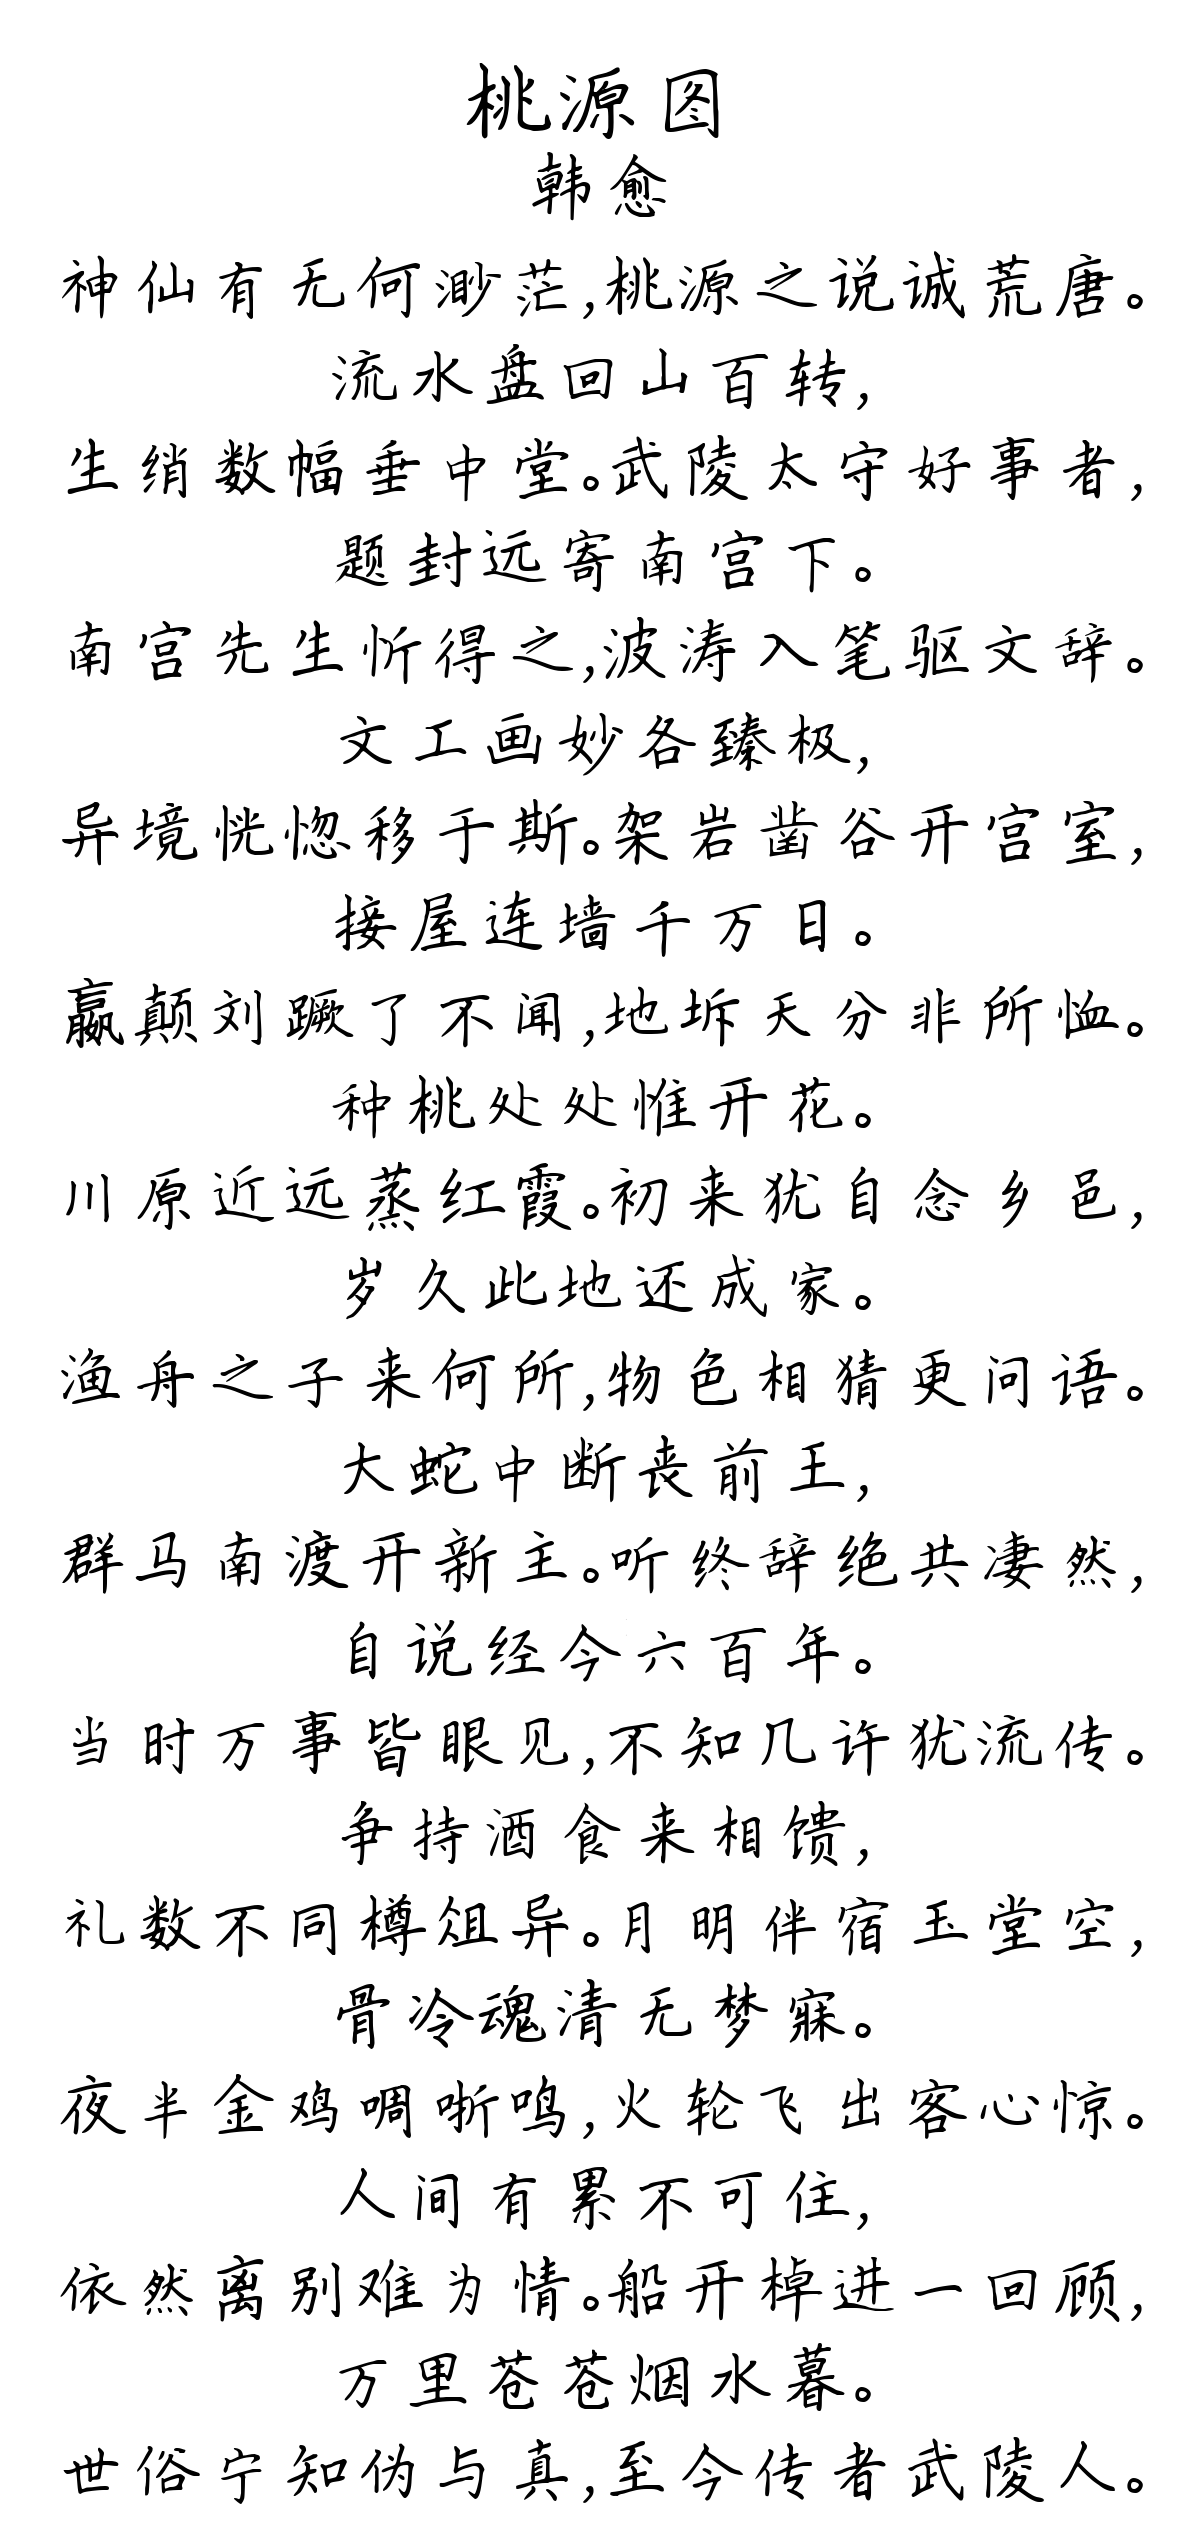 桃源图
韩愈
神仙有无何渺茫,桃源之说诚荒唐。
流水盘回山百转,
生绡数幅垂中堂。武陵太守好事者,
题封远寄南宫下。
南宫先生忻得之,波涛入笔驱文辞。
文工画妙各臻极,
异境恍惚移于斯。架岩凿谷开宫室,
接屋连墙千万日。
嬴颠刘蹶了不闻,地坼天分非所恤。
种桃处处惟开花。
川原近远蒸红霞。初来犹自念乡邑,
岁久此地还成家。
渔舟之子来何所,物色相猜更问语。
大蛇中断丧前王,
群马南渡开新主。听终辞绝共凄然,
自说经今六百年。
当时万事皆眼见,不知几许犹流传。
争持酒食来相馈,
礼数不同樽俎异。月明伴宿玉堂空,
骨冷魂清无梦寐。
夜半金鸡啁哳鸣,火轮飞出客心惊。
人间有累不可住,
依然离别难为情。船开棹进一回顾,
万里苍苍烟水暮。
世俗宁知伪与真,至今传者武陵人。